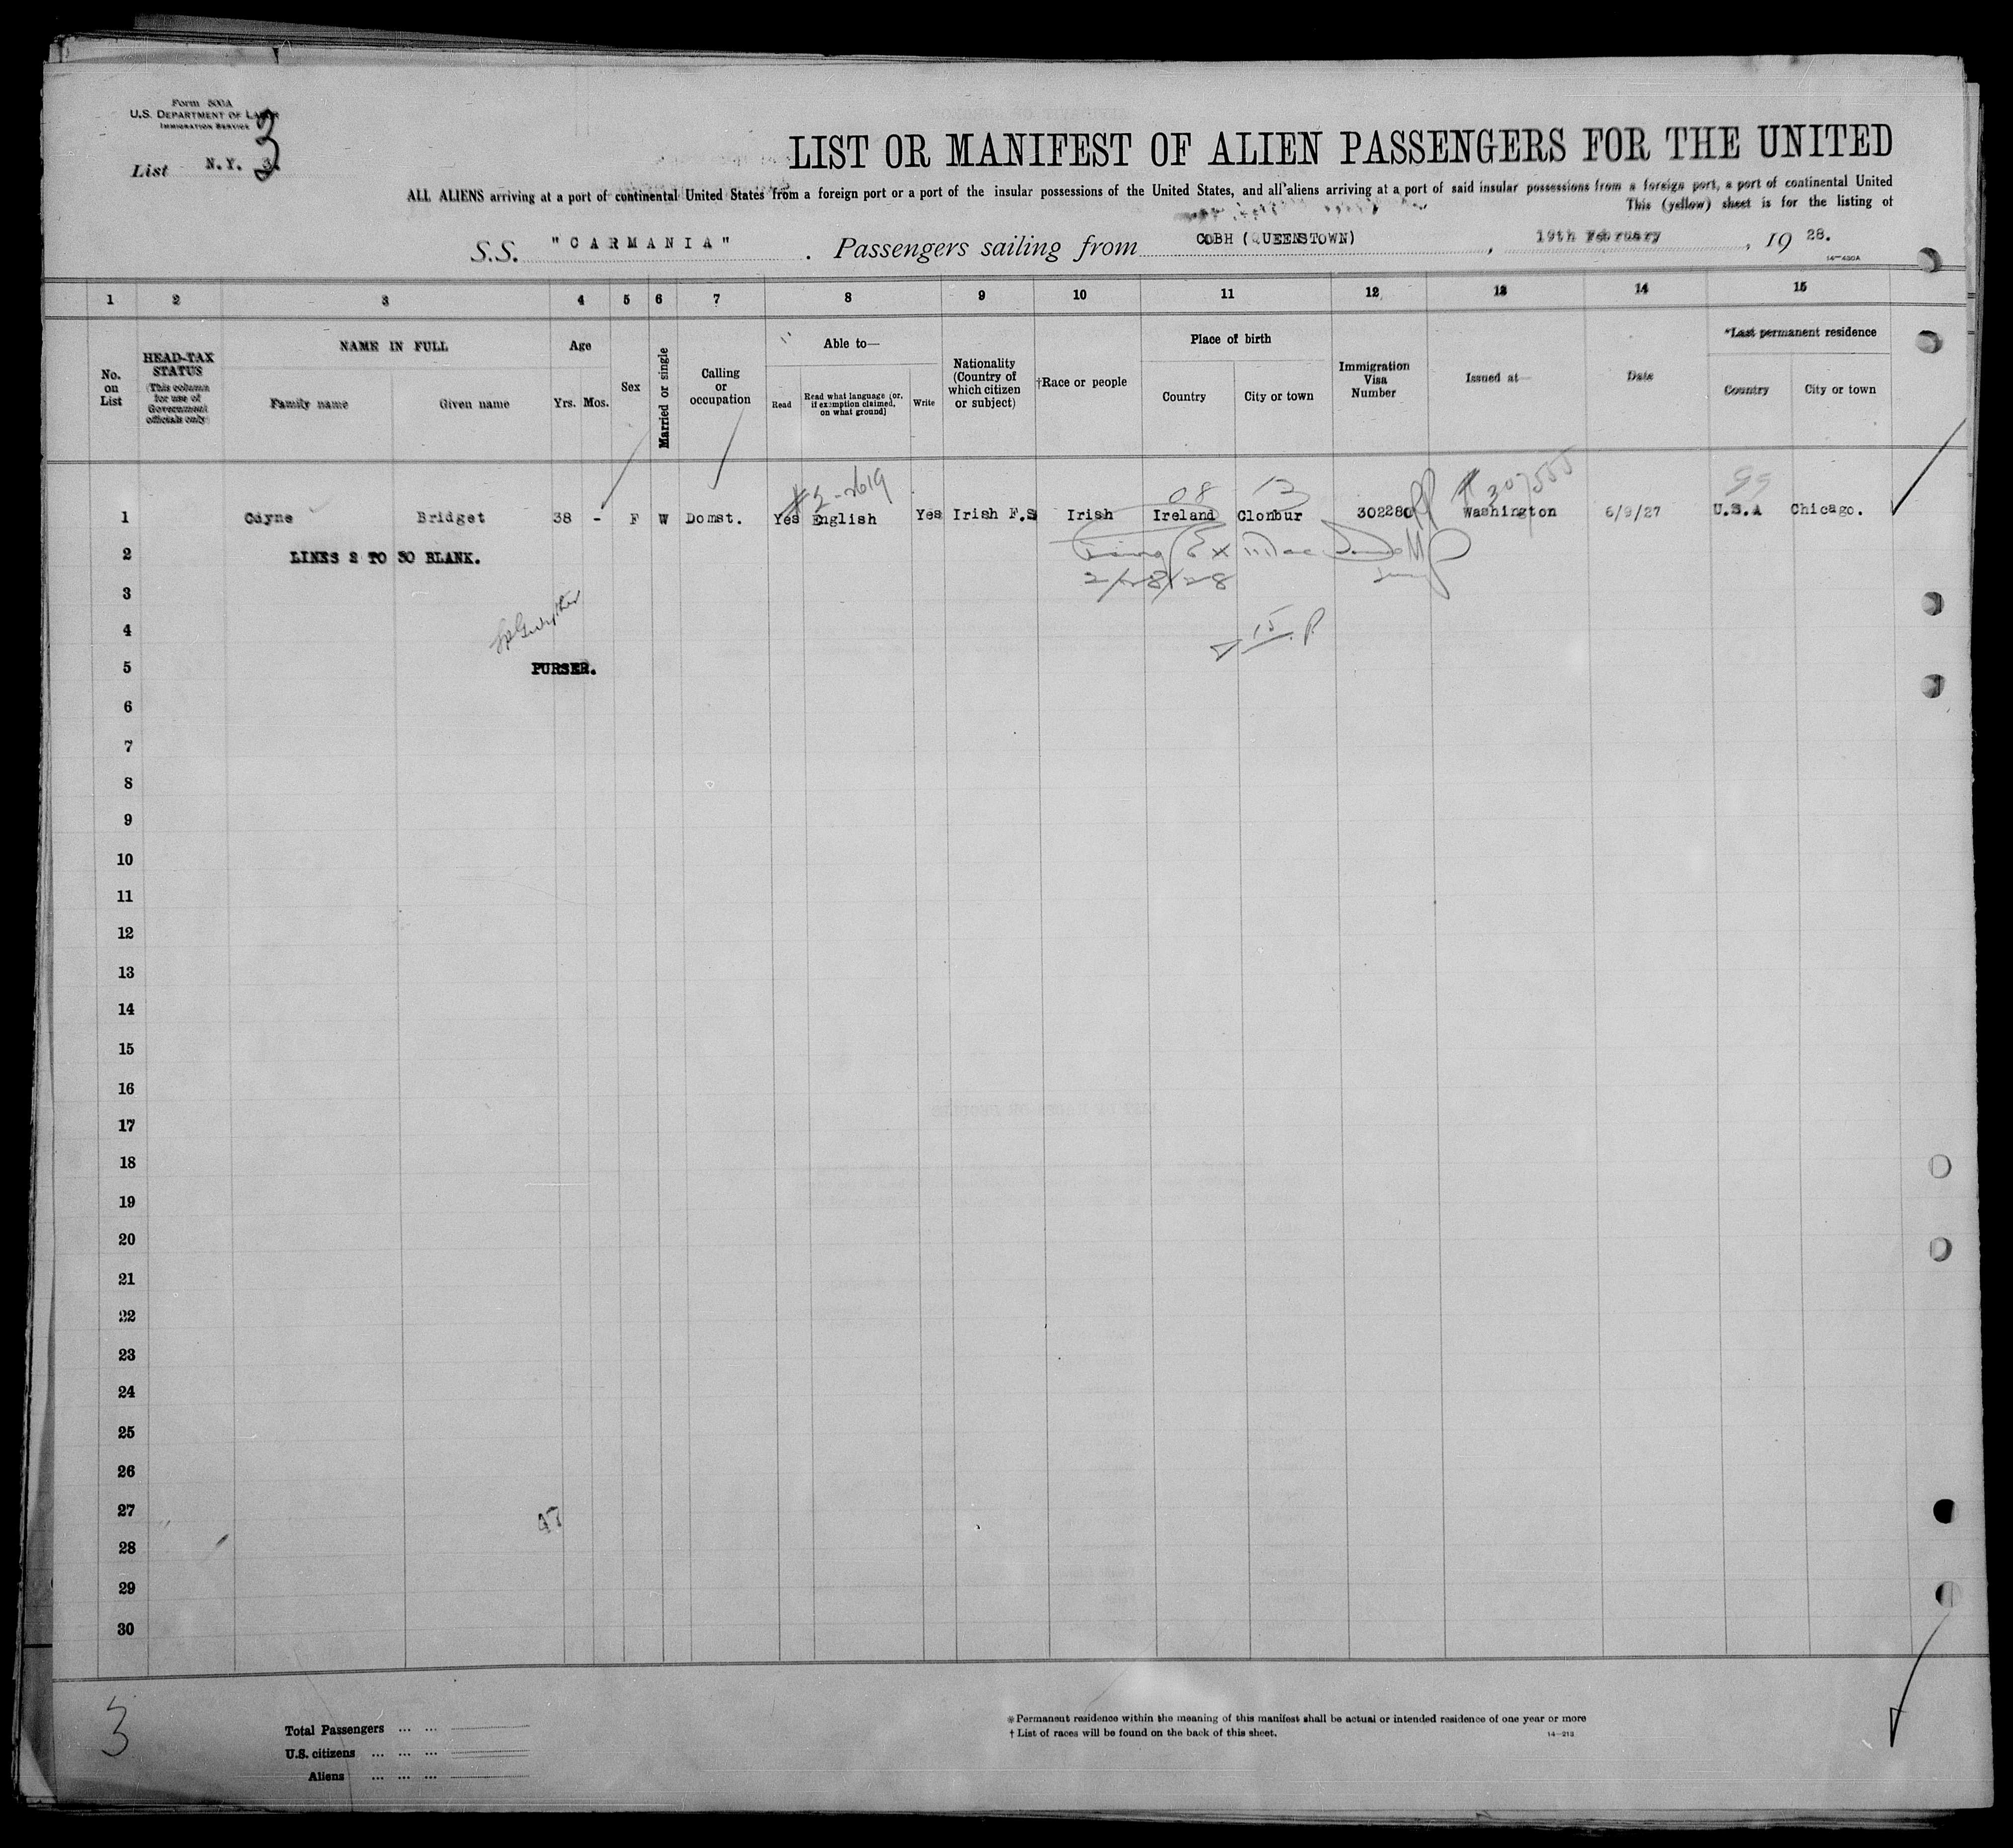 Form 500A
U.S. DEPARTMENT OF LABOR
IMMIGRATION SERVICE
3
List N.Y. 3.
LIST OR MANIFEST OF ALIEN PASSENGERS FOR THE UNITED
ALL ALIENS arriving at a port of continental United States from a foreign port or a port of the insular possessions of the United States, and all aliens arriving at a port of said insular possessions from a foreign port, a port of continental United
This (yellow) sheet is for the listing of
S.S. "CARMANIA" . Passengers sailing from COBH (QUEENSTOWN) , 19th February , 19 28.
14-430A
1 2 3 4 5 6 7 8 9 10 11 12 13 14 15
No. on List
HEAD-TAX STATUS (This column for use of Government officials only)
NAME IN FULL
Family name Given name
Age
Yrs. Mos.
Sex
Married or single
Calling or occupation
Able to—
Read Read what language (or, if exemption claimed, on what ground) Write
Nationality (Country of which citizen or subject)
†Race or people
Place of birth
Country City or town
Immigration Visa Number
Issued at—
Date
*Last permanent residence
Country City or town
#2-2619 08 13 307555 99
1 Coyne Bridget 38 - F W Domst. Yes English Yes Irish F.S Irish Ireland Clonbur 302280 Washington 6/9/27 U.S.A Chicago.
2 LINES 2 TO 30 BLANK.
2/28/28
3
4
15
5 PURSER.
6
7
8
9
10
11
12
13
14
15
16
17
18
19
20
21
22
23
24
25
26
27
28
29
30
3
Total Passengers ... ...
U.S. citizens ... ... ...
Aliens ... ... ...
*Permanent residence within the meaning of this manifest shall be actual or intended residence of one year or more
† List of races will be found on the back of this sheet.
14-213